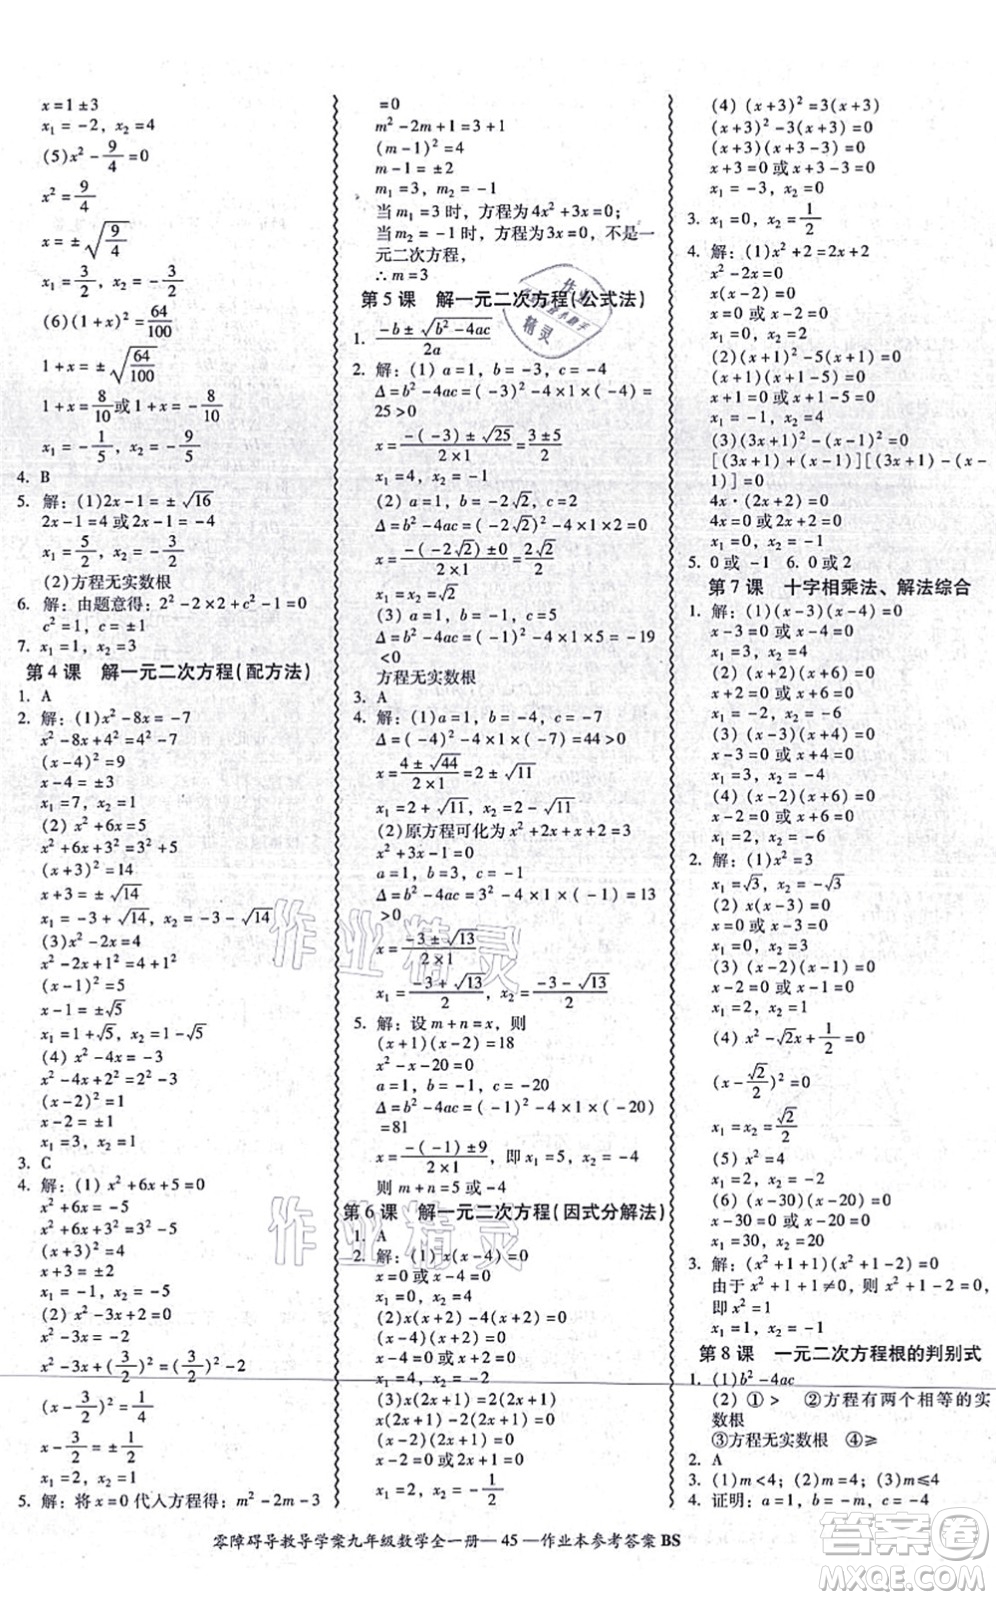 x=1±3
x₁=-2, x₂=4
(5)x²-9/4=0
x²=9/4
x=±√(9/4)
x₁=3/2, x₂=-3/2
(6)(1+x)²=64/100
1+x=±√(64/100)
1+x=8/10或1+x=-8/10
x₁=-1/5, x₂=-9/5
4. B
5. 解:(1)2x-1=±√16
2x-1=4或2x-1=-4
x₁=5/2, x₂=-3/2
(2)方程无实数根
6. 解:由题意得:2²-2×2+c²-1=0
c²=1, c=±1
7. x₁=1, x₂=3
第4课 解一元二次方程(配方法)
1. A
2. 解:(1)x²-8x=-7
x²-8x+4²=4²-7
(x-4)²=9
x-4=±3
x₁=7, x₂=1
(2) x²+6x=5
x²+6x+3²=3²+5
(x+3)²=14
x+3=±√14
x₁=-3+√14, x₂=-3-√14
(3)x²-2x=4
x²-2x+1²=4+1²
(x-1)²=5
x-1=±√5
x₁=1+√5, x₂=1-√5
(4) x²-4x=-3
x²-4x+2²=2²-3
(x-2)²=1
x-2=±1
x₁=3, x₂=1
3. C
4. 解:(1) x²+6x+5=0
x²+6x=-5
x²+6x+3²=3²-5
(x+3)²=4
x+3=±2
x₁=-1, x₂=-5
(2) x²-3x+2=0
x²-3x=-2
x²-3x+(3/2)²=(3/2)²-2
(x-3/2)²=1/4
x-3/2=±1/2
x₁=2, x₂=1
5. 解:将x=0代人方程得:m²-2m-3
=0
m²-2m+1=3+1
(m-1)²=4
m-1=±2
m₁=3, m₂=-1
当m₁=3时,方程为4x²+3x=0;
当m₂=-1时,方程为3x=0,不是一
元二次方程,
∴m=3
第5课 解一元二次方程(公式法)
1. (-b±√(b²-4ac))/2a
2. 解:(1) a=1, b=-3, c=-4
Δ=b²-4ac=(-3)²-4×1×(-4)=
25>0
x=(-(-3)±√25)/(2×1)=(3±5)/2
x₁=4, x₂=-1
(2) a=1, b=-2√2, c=2
Δ=b²-4ac=(-2√2)²-4×1×2=0
x=(-(-2√2)±0)/(2×1)=2√2/2
x₁=x₂=√2
(3) a=1, b=-1, c=5
Δ=b²-4ac=(-1)²-4×1×5=-19
<0
方程无实数根
3. A
4. 解:(1) a=1, b=-4, c=-7
Δ=(-4)²-4×1×(-7)=44>0
x=(4±√44)/(2×1)=2±√11
x₁=2+√11, x₂=2-√11
(2)原方程可化为x²+2x+x-1=0
x²+3x-1=0
a=1, b=3, c=-1
Δ=b²-4ac=3²-4×1×(-1)=13
>0
x=(-3±√13)/(2×1)
x₁=(-3+√13)/2, x₂=(-3-√13)/2
5. 解:设m+n=x, 则
(x+1)(x-2)=18
x²-x-20=0
a=1, b=-1, c=-20
Δ=b²-4ac=(-1)²-4×1×(-20)
=81
x=(-(-1)±9)/(2×1), 即x₁=5, x₂=-4
则m+n=5或-4
第6课 解一元二次方程(因式分解法)
1. A
2. 解:(1) x(x-4)=0
x=0或x-4=0
x₁=0, x₂=4
(2)x(x-4)+4(x-4)=0
(x-4)(x+4)=0
x-4=0或x+4=0
x₁=4, x₂=-4
(3)x(2x+1)-2(2x+1)=0
(x-2)(2x+1)=0
x-2=0或2x+1=0
x₁=2, x₂=-1/2
(4) (x+3)²=3(x+3)
(x+3)²-3(x+3)=0
(x+3)(x+3-3)=0
x+3=0或x+3-3=0
x₁=-3, x₂=0
3. x₁=0, x₂=1/2
4. 解:(1)x²+2=2x+2
x²-2x=0
x(x-2)=0
x=0或x-2=0
x₁=0, x₂=2
(2)(x-1)²-5(x-1)=0
(x-1)(x-1-5)=0
x-1=0或x-6=0
x₁=1, x₂=6
(3)(3x+1)²-(x-1)²=0
[(3x+1)+(x-1)][(3x+1)-(x-
1)]=0
4x·(2x+2)=0
4x=0或2x+2=0
x₁=0, x₂=-1
5. 0或-1 6. 0或2
第7课 十字相乘法、解法综合
1. 解:(1)(x-3)(x-4)=0
x-3=0或x-4=0
x₁=3, x₂=4
(2) (x+2)(x-6)=0
x+2=0或x-6=0
x₁=-2, x₂=6
(3) (x-7)(x+4)=0
x-7=0或x+4=0
x₁=7, x₂=-4
(4) (x-2)(x+6)=0
x-2=0或x+6=0
x₁=2, x₂=-6
2. 解:(1)x²=3
x₁=√3, x₂=-√3
(2) x(x-3)=0
x=0或x-3=0
x₁=0, x₂=3
(3) (x-2)(x-1)=0
x-2=0或x-1=0
x₁=2, x₂=1
(4) x²-√2x+1/2=0
(x-√2/2)²=0
x₁=x₂=√2/2
(5) x²=4
x₁=2, x₂=-2
(6) (x-30)(x-20)=0
x-30=0或x-20=0
x₁=30, x₂=20
3. 解:(x²+1)(x²+1-2)=0
由于x²+1≠0, 则x²+1-2=0,
即x²=1
x₁=1, x₂=-1
第8课 一元二次方程根的判别式
1. (1)b²-4ac
(2) ①> ②方程有两个相等的实
数根
③方程无实数根 ④≥
2. A
3. (1)m<4; (2)m=4; (3)m≤4
4. 证明:a=1, b=-k, c=k-2
零障碍导教导学案九年级数学全一册—45—作业本参考答案 BS
作业精灵
作业精灵
作业
精灵
答案圈
MXQE.COM